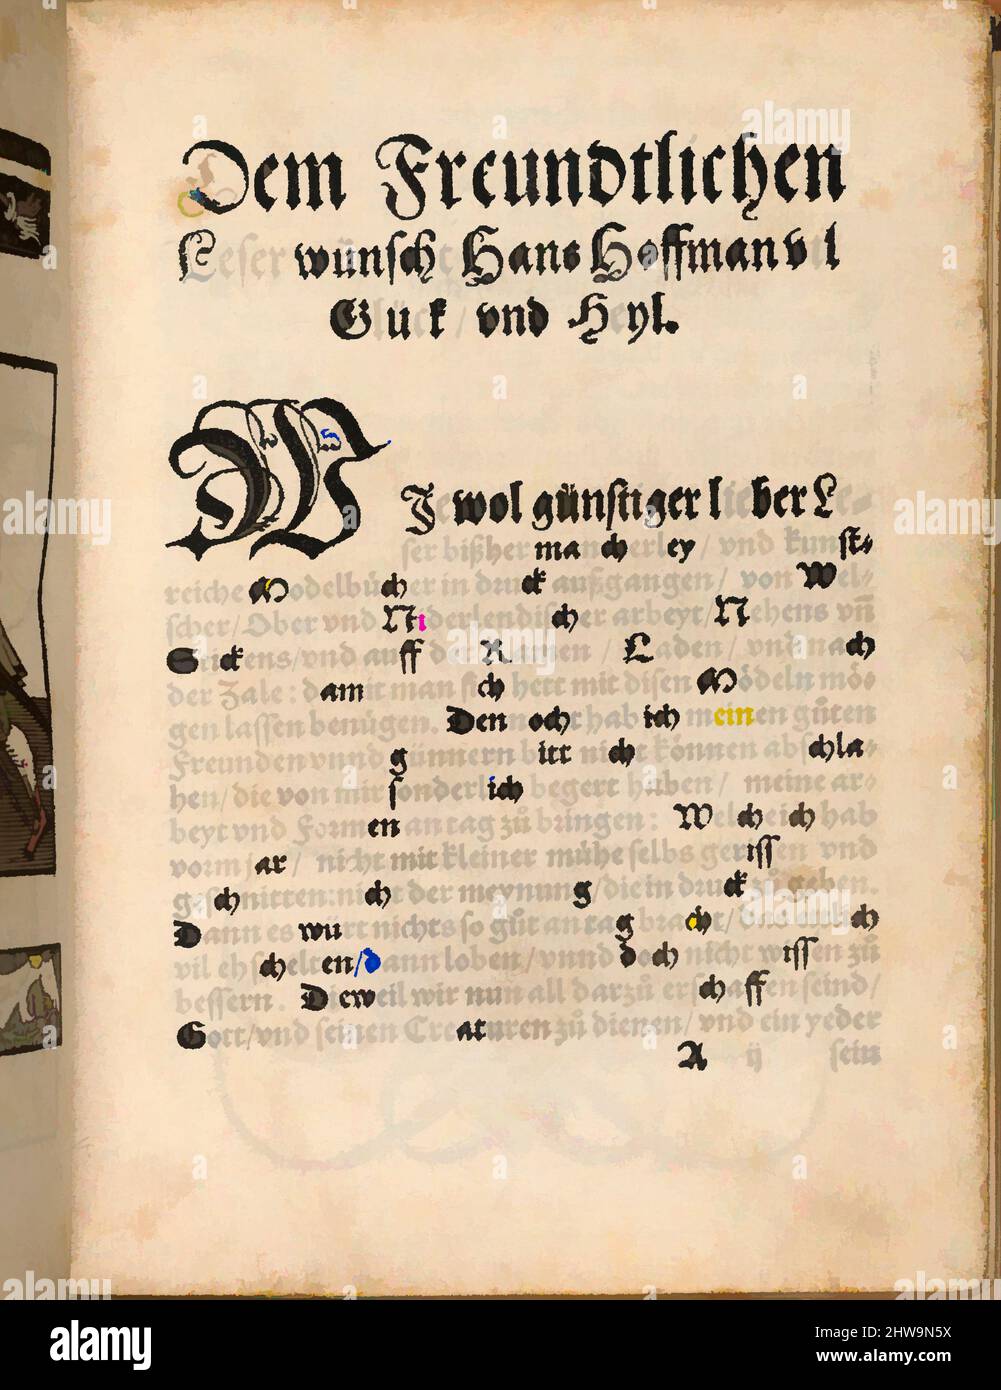 Dem Freundtlichen
Leser wünscht Hans Hoffman vil
Glück / vnd Heyl.
WJewol günstiger lieber Le-
ser bißher mancherley / vnd kunst-
reiche Modelbücher in druck außgangen / von Wel-
scher / Ober vnd Niderlendischer arbeyt / Nehens vñ
Stickens / vnd auff der Ramen / Laden / vnd nach
der Zale : damit man sich hett mit disen Mödeln mö-
gen lassen benügen. Dennoch hab ich meinen gůten
Freunden vnnd günnern bitt nicht können abschla-
hen / die von mir sonderlich begert haben / meine ar-
beyt vnd Formen an tag zů bringen : Welche ich hab
vorm jar / nicht mit kleiner mühe selbs gerissen vnd
geschnitten : nicht der meynung / die in druck zů geben.
Dann es würt nichts so gůt an tag bracht / das auch
vil eh schelten / dann loben / vnnd doch nicht wissen zů
bessern. Dieweil wir nun all darzů erschaffen seind /
Gott / vnd seinen Creaturen zů dienen / vnd ein yeder
A ij sein
alamy
Image ID: 2HW9N5X
www.alamy.com